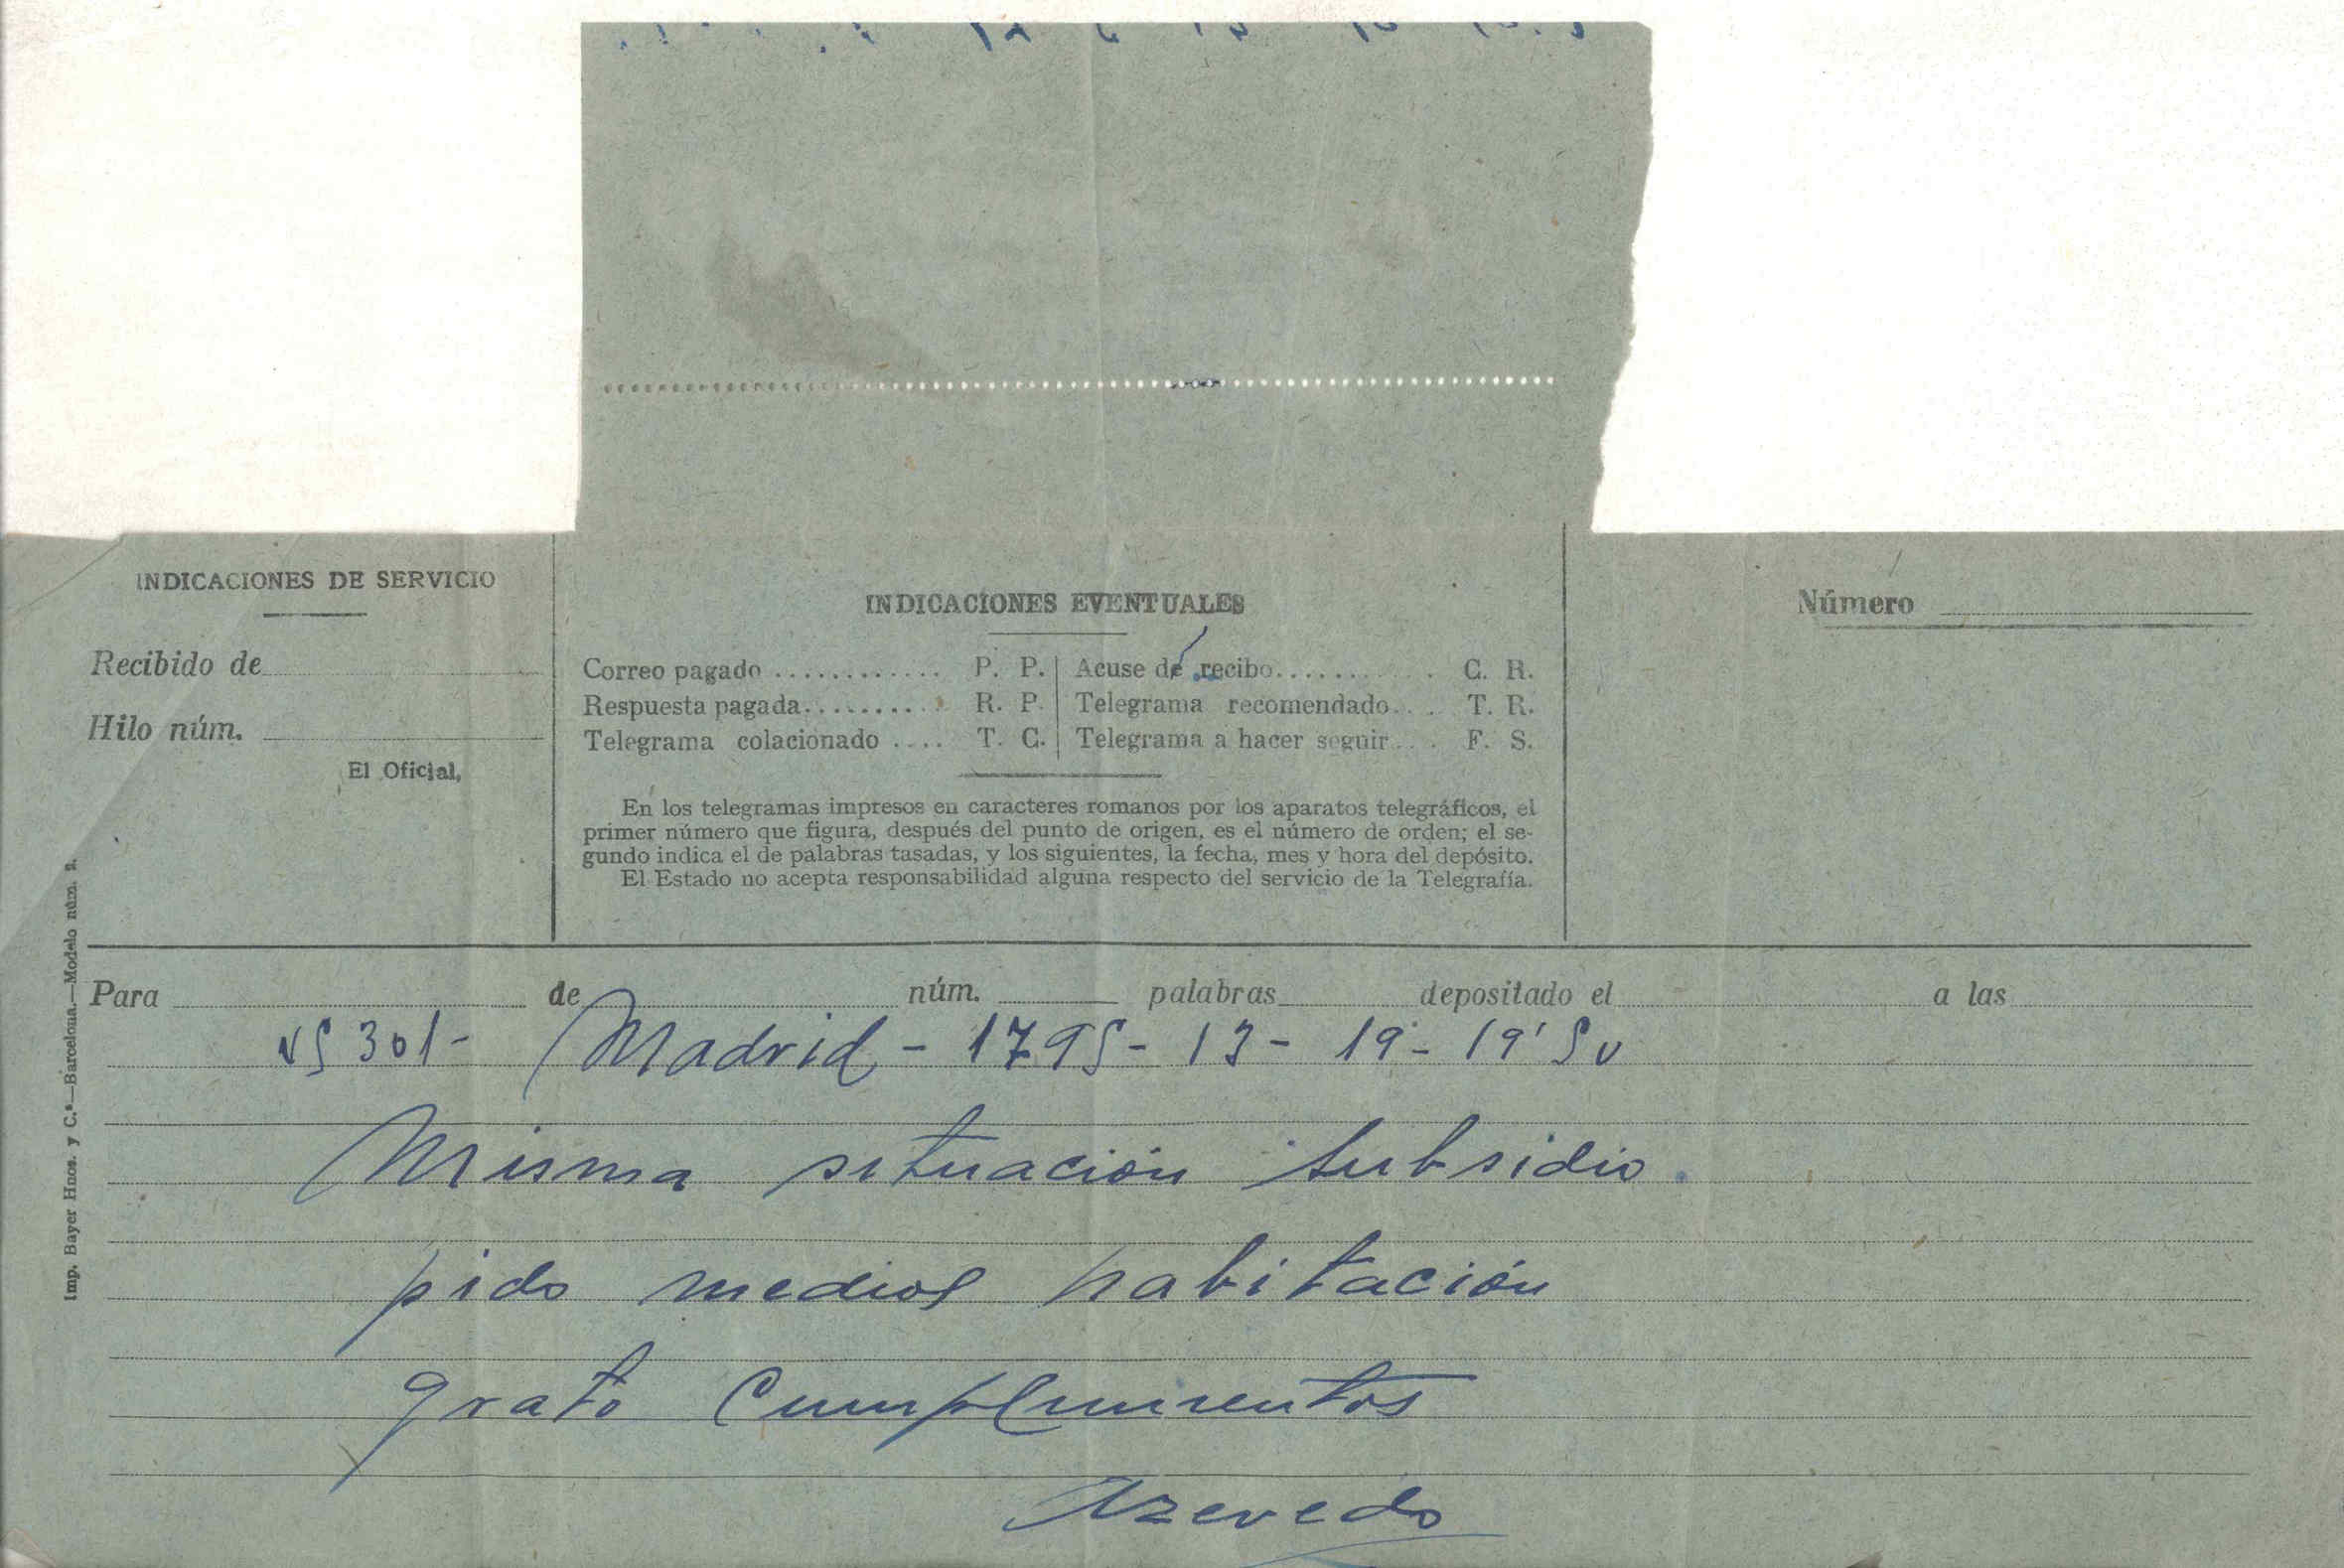 INDICACIONES DE SERVICIO
Recibido de
Hilo núm.
El Oficial,
INDICACIONES EVENTUALES
Correo pagado ............ P. P.
Respuesta pagada.......... R. P.
Telegrama colacionado .... T. C.
Acuse de recibo........... C. R.
Telegrama recomendado.... T. R.
Telegrama a hacer seguir.... F. S.
En los telegramas impresos en caracteres romanos por los aparatos telegráficos, el
primer número que figura, después del punto de origen, es el número de orden; el se-
gundo indica el de palabras tasadas, y los siguientes, la fecha, mes y hora del depósito.
El Estado no acepta responsabilidad alguna respecto del servicio de la Telegrafía.
Número
Imp. Bayer Hnos. y C.ª—Barcelona.—Modelo núm. 2.
Para de núm. palabras depositado el a las
301- Madrid - 1795 - 13 - 19 - 19'50
Misma situación subsidio.
pido medios habitación
grato cumplimentos
Azevedo